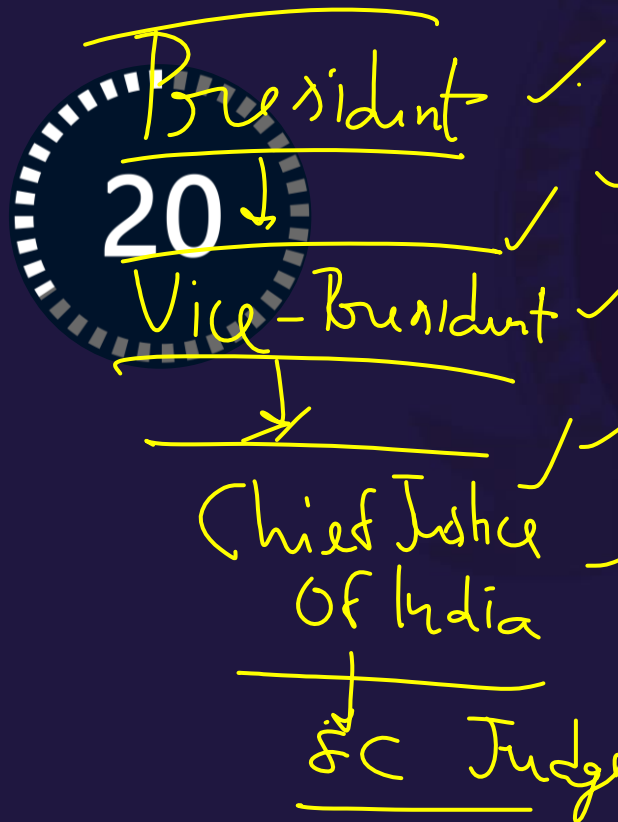 President
20
Vice-President
Chief Justice
Of India
SC Judge